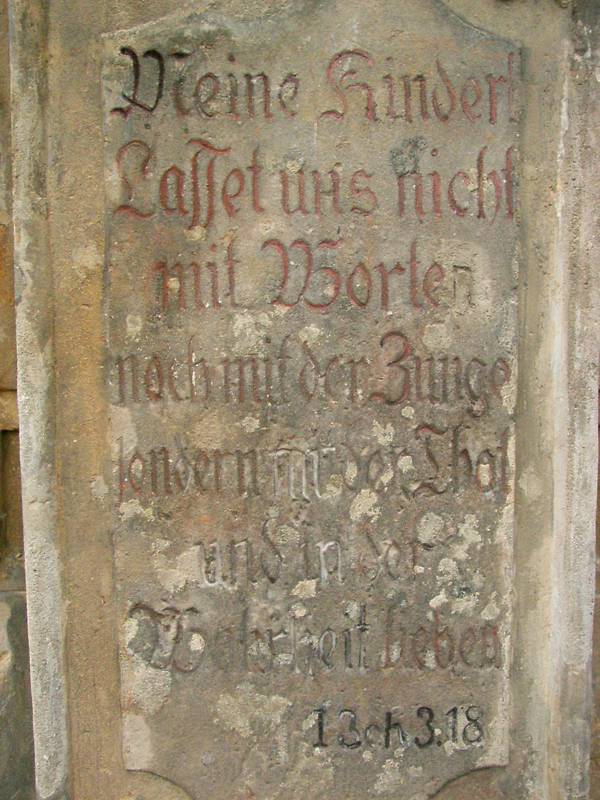 Meine Kinder!
Lasset uns nicht
mit Worten
noch mit der Zunge
sondern mit der That
und in der
Wahrheit lieben
1 Joh 3.18